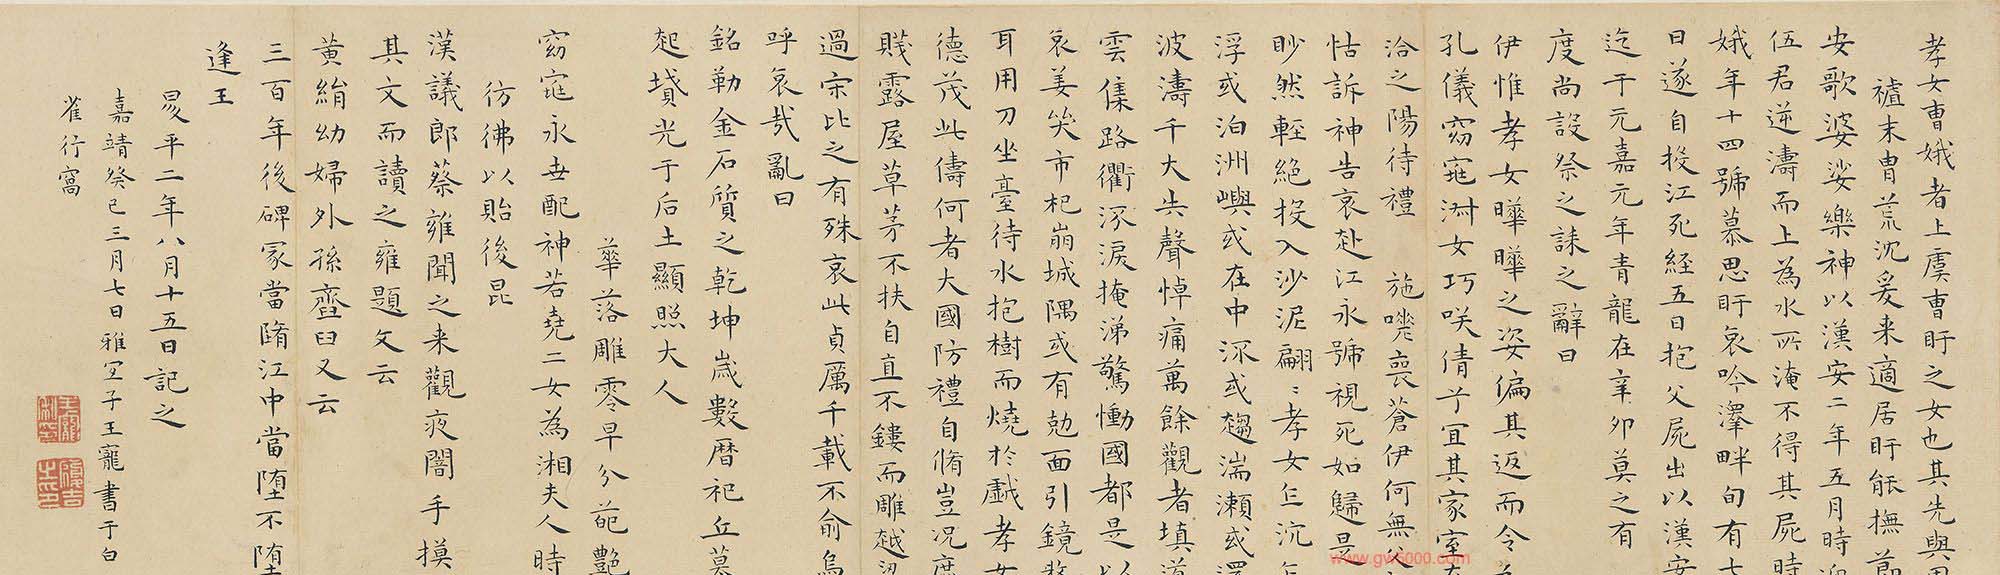 孝女曹娥者上虞曹盱之女也其先與周
禃末曹荒沈爰来適居盱能撫節
安歌婆娑樂神以漢安二年五月時迎
伍君逆濤而上為水所淹不得其屍時
娥年十四號慕思盱哀吟澤畔旬有七
日遂自投江死経五日抱父屍出以漢安
迄于元嘉元年青龍在辛卯莫之有
度尚設祭之誄之辭曰
伊惟孝女曄曄之姿偏其返而令
孔儀窈窕淑女巧咲倩兮冝其家室在
洽之陽待禮 施嗟喪蒼伊何無父
怙訴神告哀赴江永號視死如歸是
眇然輕絶投入沙泥翩〻孝女乍沉乍
浮或泊洲嶼或在中流或趨湍瀬或還
波濤千夫失聲悼痛萬餘觀者填道
雲集路衢流淚掩涕驚慟國都是以
哀姜哭市杞崩城隅或有勊面引鏡
耳用刀坐臺待水抱樹而燒於戯孝女
德茂此儔何者大國防禮自脩豈况庶
賤露屋草茅不扶自直不鏤而雕越
過宋比之有殊哀此貞厲千載不俞烏
呼哀哉亂曰
銘勒金石質之乾坤歳數暦祀丘墓
起墳光于后土顯照大人
華落雕零早分葩艶
窈窕永世配神若堯二女為湘夫人時
彷彿以貽後昆
漢議郎蔡雍聞之来觀夜闇手摸
其文而讀之雍題文云
黄絹幼婦外孫齏臼又云
三百年後碑冢當隋江中當堕不堕
逢王
昇平二年八月十五日記之
嘉靖癸巳三月七日雅宜子王寵書于白
雀行窩
www.gw5000.com